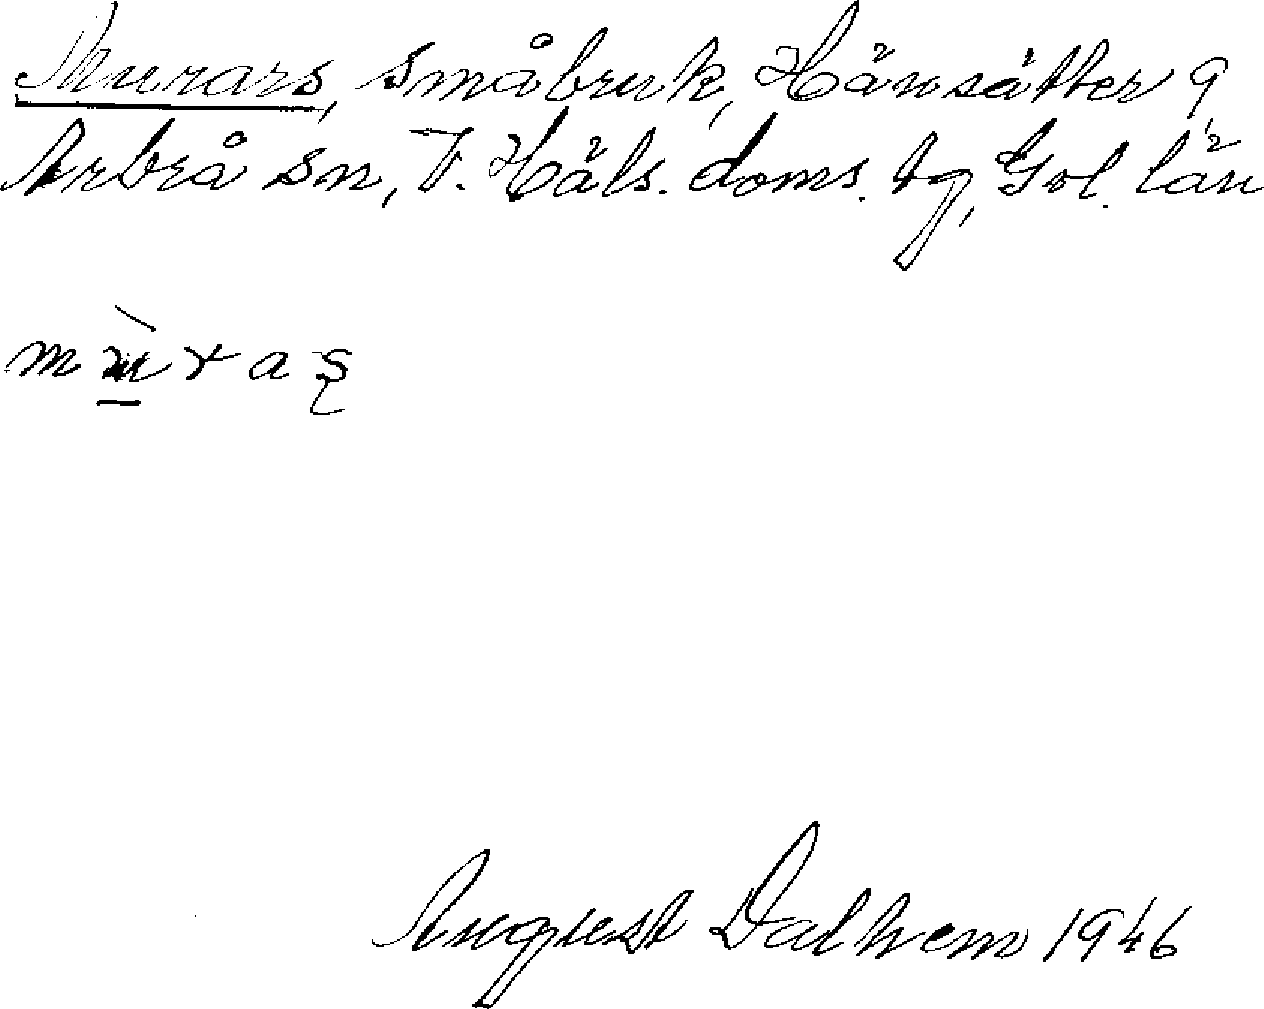 Murars, småbruk, Hänsätter 9,
Arbrå sn, V. Häls. doms. tg, Gvl. län
August Dalhem 1946